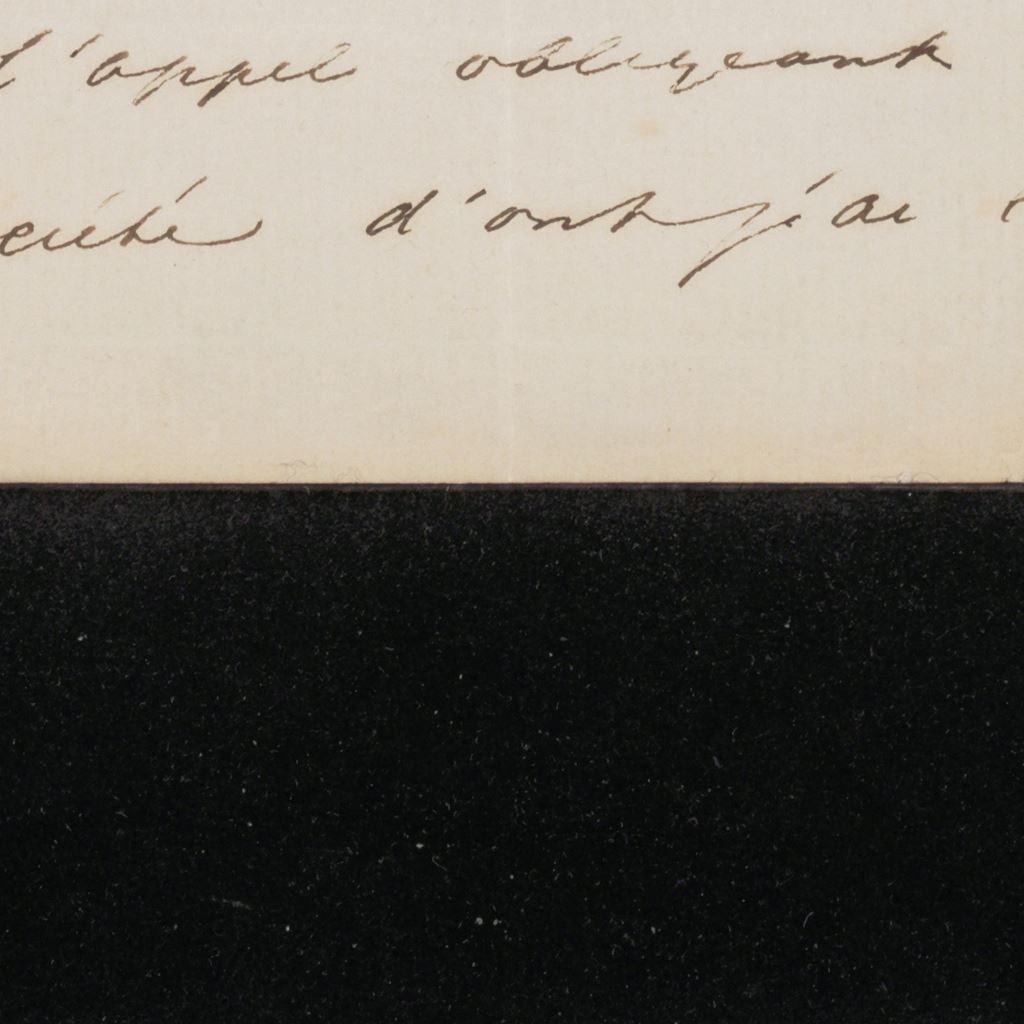 l'appel obligeant
ciété d'ont j'ai